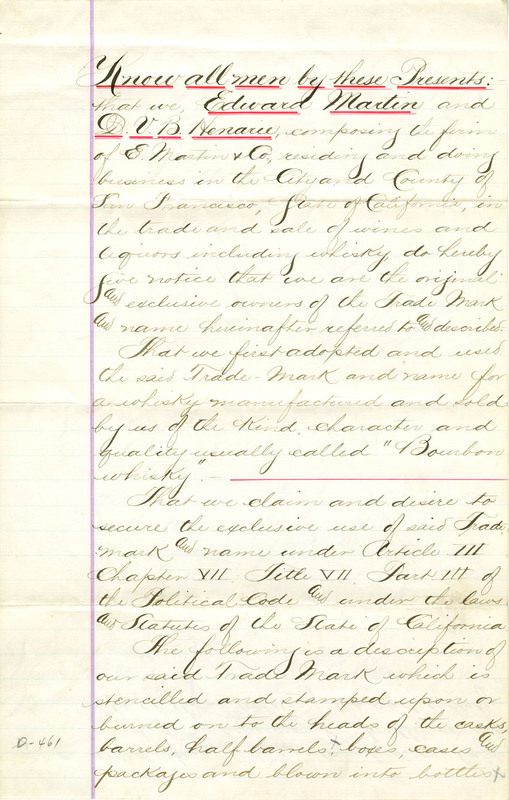 Know all men by these Presents:
that we, Edward Martin and
D. V. B. Henarie, composing the firm
of E. Martin & Co, residing and doing
business in the City and County of
San Francisco, State of California, in
the trade and sale of wines and
liquors including whisky do hereby
give notice that we are the original
and exclusive owners of the Trade Mark
and name hereinafter referred to and described.
That we first adopted and used
the said Trade-Mark and name for
a whisky manufactured and sold
by us of the Kind, character and
quality usually called "Bourbon
whisky".—
That we claim and desire to
secure the exclusive use of said Trade
mark and name under Article III
Chapter VII, Title VII, Part III of
the Political Code and under the laws
and Statutes of the State of California
The following is a description of
our said Trade Mark which is
stencilled and stamped upon or
burned on to the heads of the casks,
barrels, half barrels, boxes, cases and
D-461
packages and blown into bottles